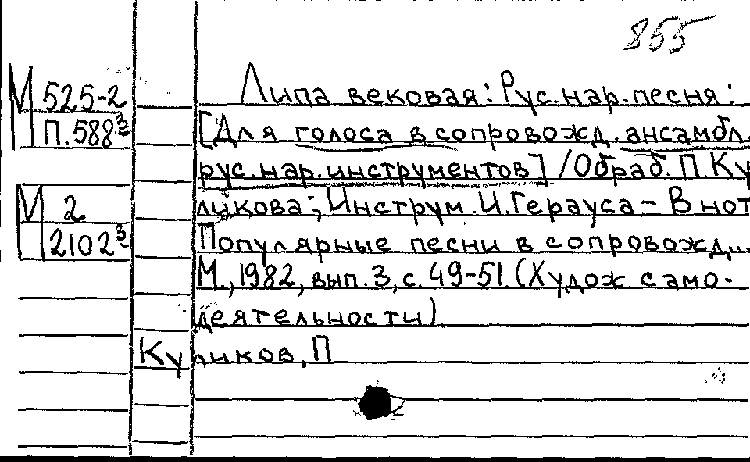 855
М 525-2
П.588³
М 2
2102³
Липа вековая: Рус. нар. песня:
[Для голоса в сопровожд. ансамбл.
рус. нар. инструментов] / Обраб. П Ку
ликова; Инструм. И. Герауса – В нот
Популярные песни в сопровожд...
М., 1982, вып. 3, с. 49-51. (Худож само-
деятельности)
Куликов, П